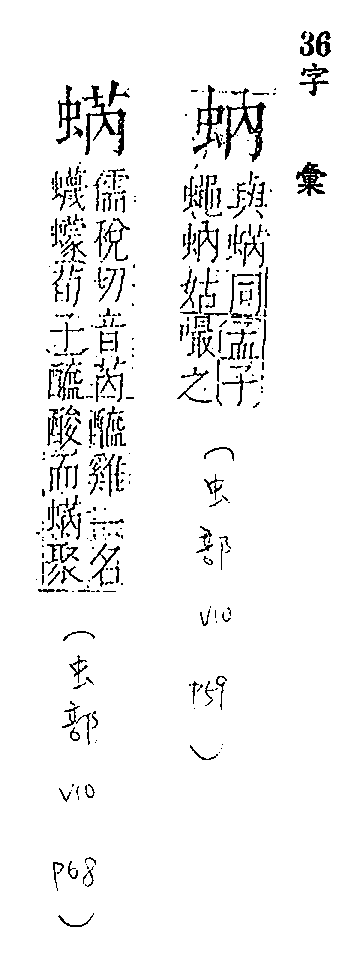 36字彙
蚋
與蜹同孟子
蠅蚋姑嘬之
(虫部 V10 P59)
蜹
儒稅切音芮醯雞一名
蠛蠓荀子醯酸而蜹聚
(虫部 V10 P68)